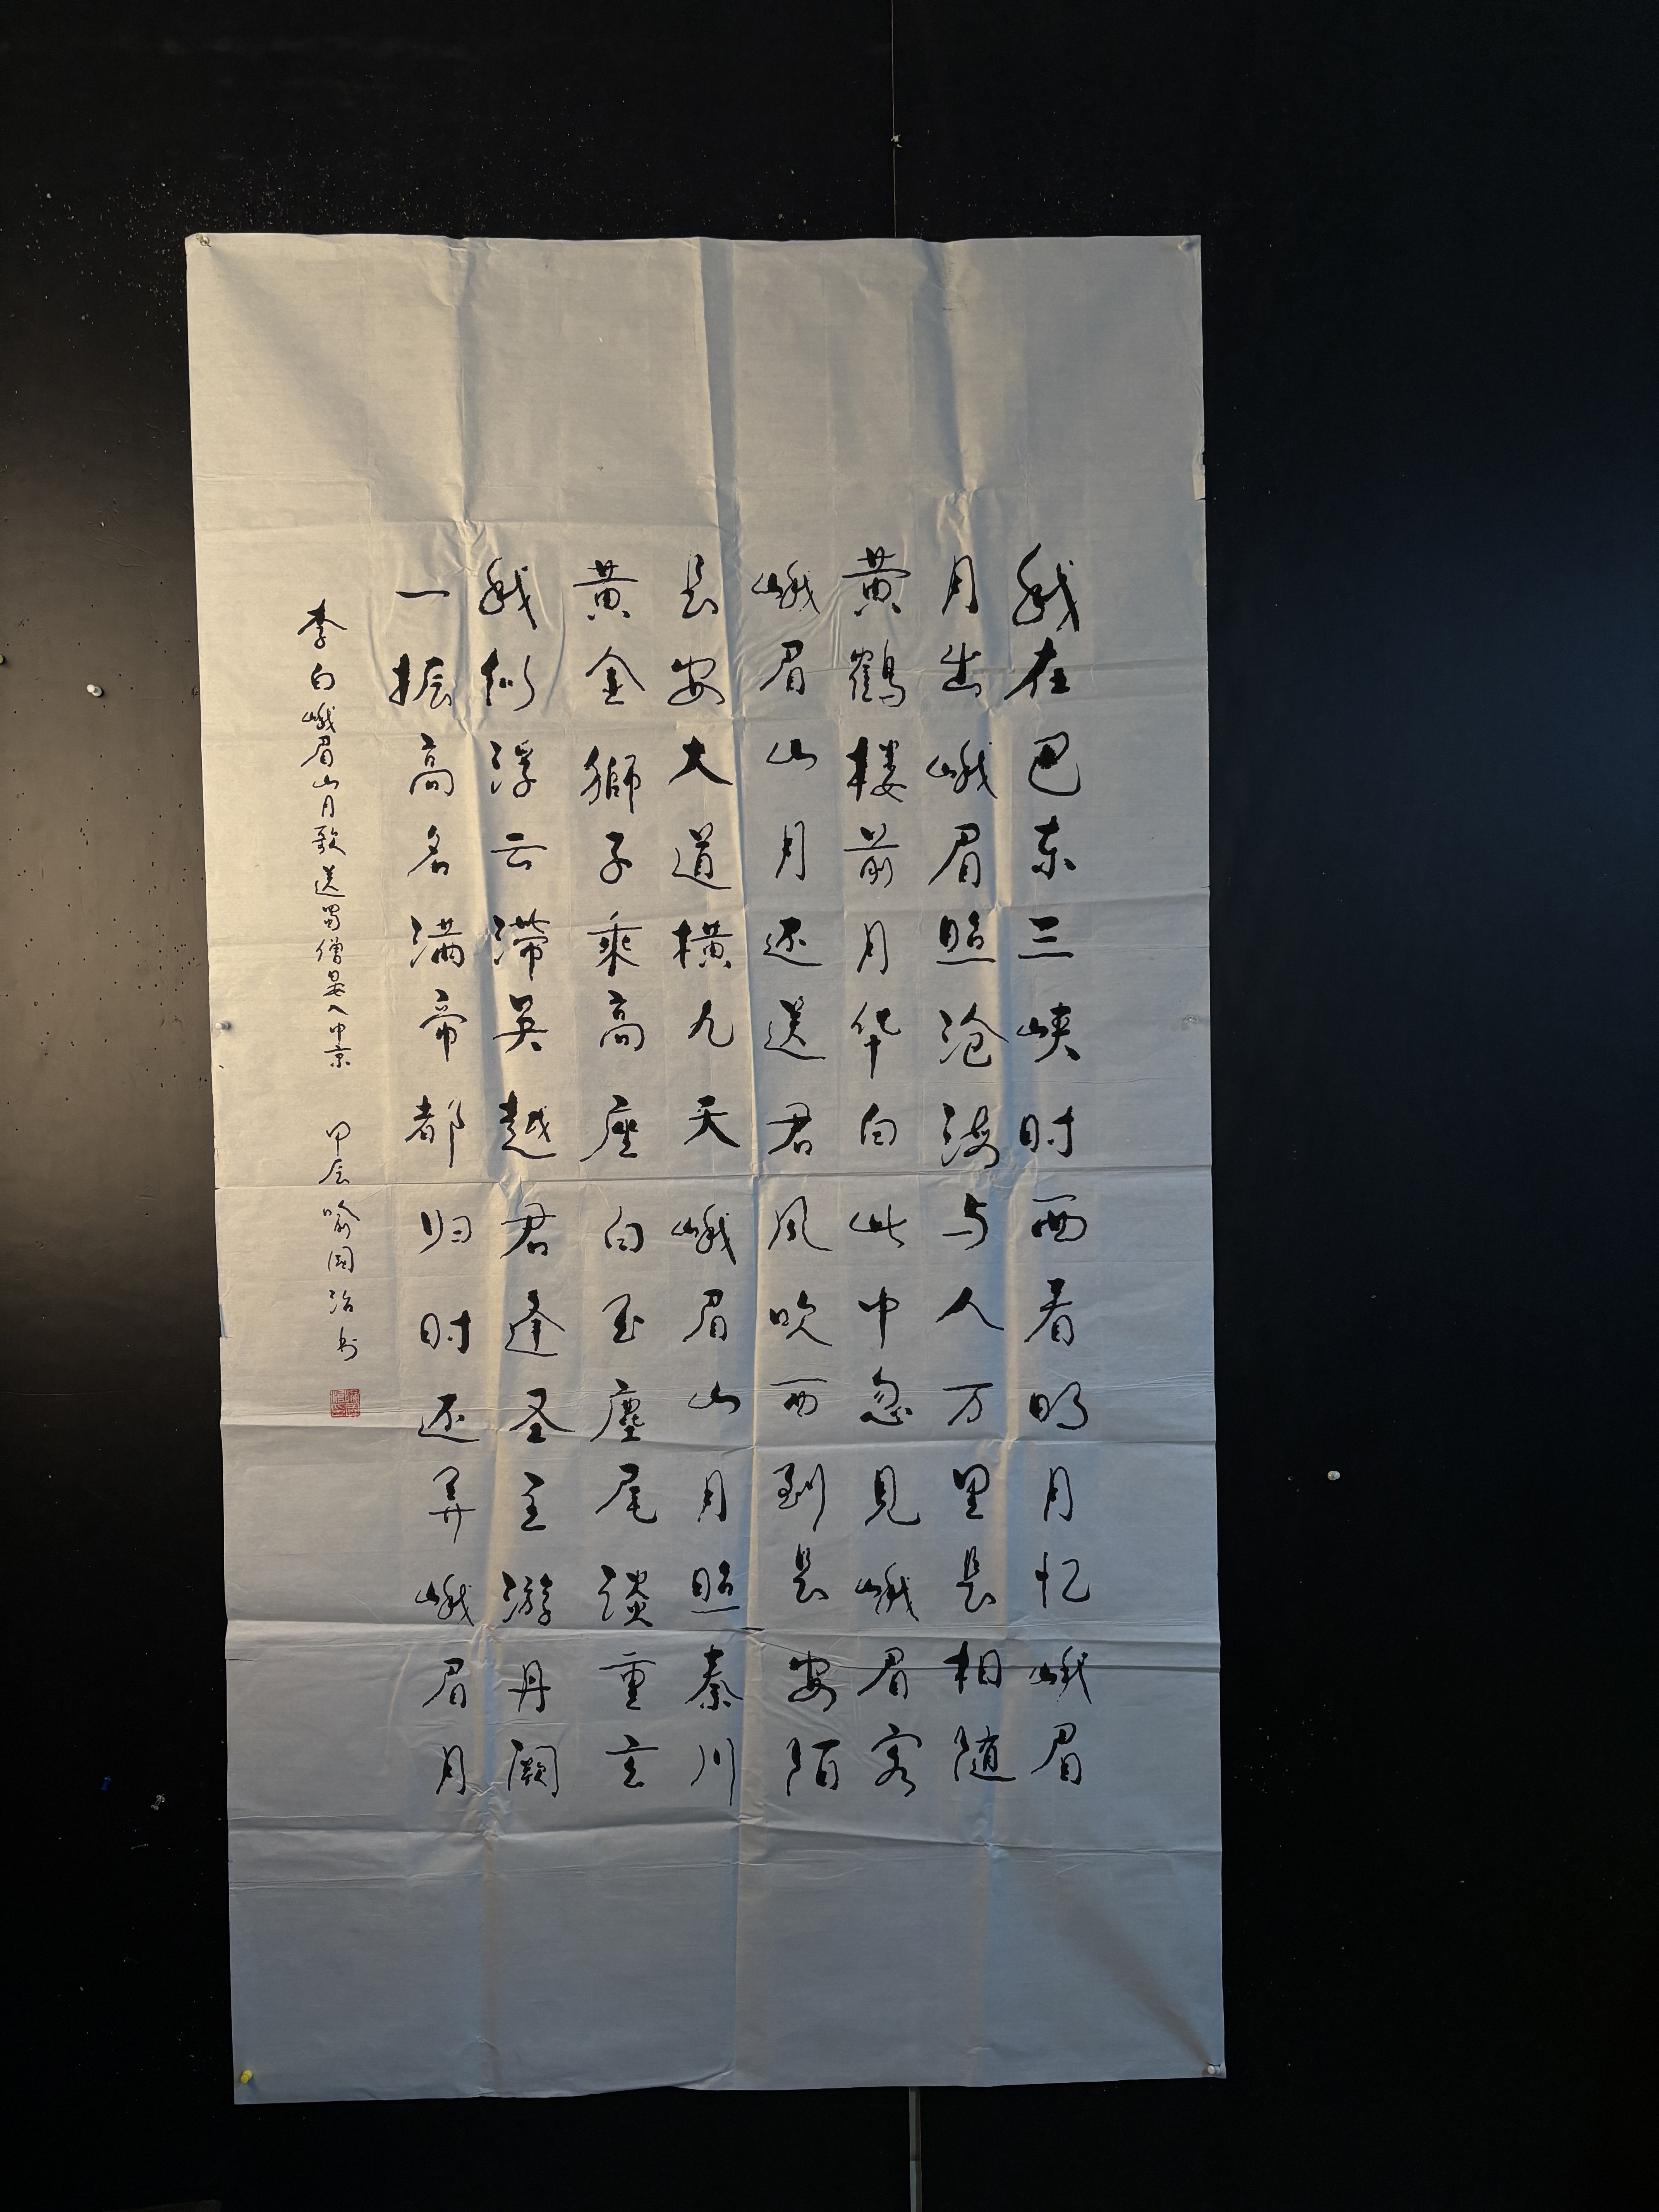 我在巴东三峡时西看明月忆峨眉
月出峨眉照沧海与人万里长相随
黄鹤楼前月华白此中忽见峨眉客
峨眉山月还送君风吹西到长安陌
长安大道横九天峨眉山月照秦川
黄金獅子乘高座白玉麈尾談重玄
我似浮云滞吴越君逢圣主游丹阙
一振高名满帝都归时还弄峨眉月
李白峨眉山月歌送蜀僧晏入中京 甲辰喻国治书